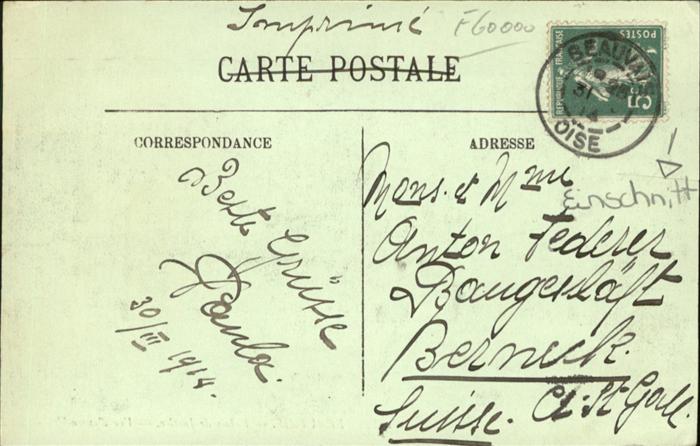 Imprimé F60000
CARTE POSTALE
RÉPUBLIQUE FRANÇAISE
POSTES
5c
BEAUVAIS
31
14
OISE
CORRESPONDANCE
Beste Grüsse
Paula.
30/III 1914.
ADRESSE
Einschnitt
Mons. et Mme
Anton Federer
Baugeschäft
Berneck.
Suisse. Ct. St Gall.